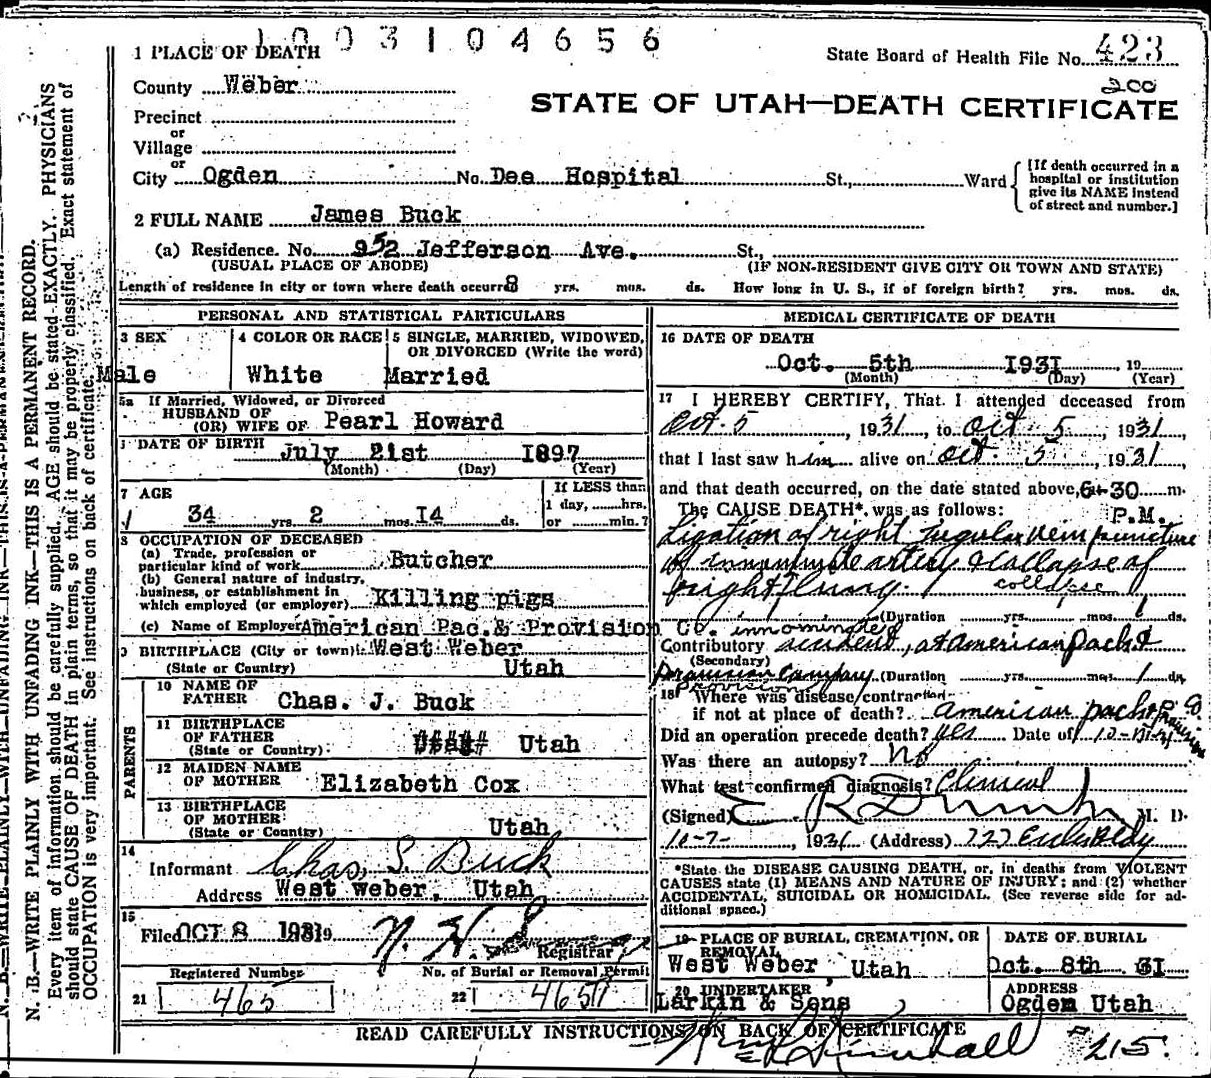 1003104656
1 PLACE OF DEATH
State Board of Health File No. 423
200
County Weber
STATE OF UTAH—DEATH CERTIFICATE
Precinct
or
Village
or
City Ogden No. Dee Hospital St., Ward
[If death occurred in a hospital or institution give its NAME instead of street and number.]
2 FULL NAME James Buck
(a) Residence. No. 952 Jefferson Ave. St.,
(USUAL PLACE OF ABODE) (IF NON-RESIDENT GIVE CITY OR TOWN AND STATE)
Length of residence in city or town where death occurred 8 yrs. mos. ds. How long in U. S., if of foreign birth? yrs. mos. ds.
PERSONAL AND STATISTICAL PARTICULARS
3 SEX
Male
4 COLOR OR RACE
White
5 SINGLE, MARRIED, WIDOWED,
OR DIVORCED (Write the word)
Married
5a If Married, Widowed, or Divorced
HUSBAND OF
(OR) WIFE OF Pearl Howard
DATE OF BIRTH July 21st 1897
(Month) (Day) (Year)
7 AGE
34 yrs. 2 mos. 14 ds.
If LESS than
1 day, hrs.
or min.?
8 OCCUPATION OF DECEASED
(a) Trade, profession or
particular kind of work Butcher
(b) General nature of industry,
business, or establishment in
which employed (or employer) Killing pigs
(c) Name of Employer American Pac.& Provision Co.
9 BIRTHPLACE (City or town) West Weber
(State or Country) Utah
PARENTS
10 NAME OF
FATHER Chas. J. Buck
11 BIRTHPLACE
OF FATHER
(State or Country) Utah
12 MAIDEN NAME
OF MOTHER Elizabeth Cox
13 BIRTHPLACE
OF MOTHER
(State or Country) Utah
14
Informant Chas. S. Buck
Address West weber, Utah
15
Filed OCT 8 1931 19
Registrar
Registered Number
21 465
No. of Burial or Removal Permit
22 4657
MEDICAL CERTIFICATE OF DEATH
16 DATE OF DEATH
Oct. 5th 1931 19
(Month) (Day) (Year)
17 I HEREBY CERTIFY, That I attended deceased from
Oct. 5, 1931, to Oct. 5, 1931,
that I last saw him alive on Oct. 5, 1931,
and that death occurred, on the date stated above, 6-30 m.
P.M.
The CAUSE DEATH*, was as follows:
Ligation of right jugular vein puncture
of innominate artery & collapse of
right lung. collapse
(Duration yrs. mos. 1 ds.
innominate
Contributory accident, at American Pack &
(Secondary)
Provision Company (Duration yrs. mos. 1 ds.
Provision
18 Where was disease contracted
if not at place of death? American Pack & Provision Co
Did an operation precede death? yes Date of
Was there an autopsy? No
What test confirmed diagnosis? Clinical
(Signed) M. D.
10-7-, 1931 (Address)
*State the DISEASE CAUSING DEATH, or, in deaths from VIOLENT
CAUSES state (1) MEANS AND NATURE OF INJURY; and (2) whether
ACCIDENTAL, SUICIDAL OR HOMICIDAL. (See reverse side for ad-
ditional space.)
19 PLACE OF BURIAL, CREMATION, OR
REMOVAL
West Weber, Utah
DATE OF BURIAL
Oct. 8th 31
20 UNDERTAKER
Larkin & Sons
ADDRESS
Ogden Utah
READ CAREFULLY INSTRUCTIONS ON BACK OF CERTIFICATE
215.
N. B.—WRITE PLAINLY WITH UNFADING INK—THIS IS A PERMANENT RECORD.
Every item of information should be carefully supplied. AGE should be stated EXACTLY. PHYSICIANS
should state CAUSE OF DEATH in plain terms, so that it may be properly classified. Exact statement of
OCCUPATION is very important. See instructions on back of certificate.